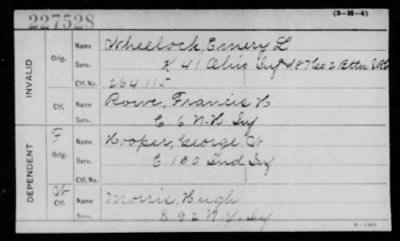 227528
(3-H-4)
INVALID
Orig.
Name
Wheelock, Emery L
Serv.
K 41 Ohio Inf & 187 Co 2 Battn
Ctf. No.
264115
Ctf.
Name
Rowe, Francis H
Serv.
E 6 N.H. Inf
DEPENDENT
F
Orig.
Name
Hooper, George W
Serv.
E 130 Ind Inf
Ctf. No.
W
Ctf.
Name
Morris, Hugh
Serv.
E 92 N.Y. Inf